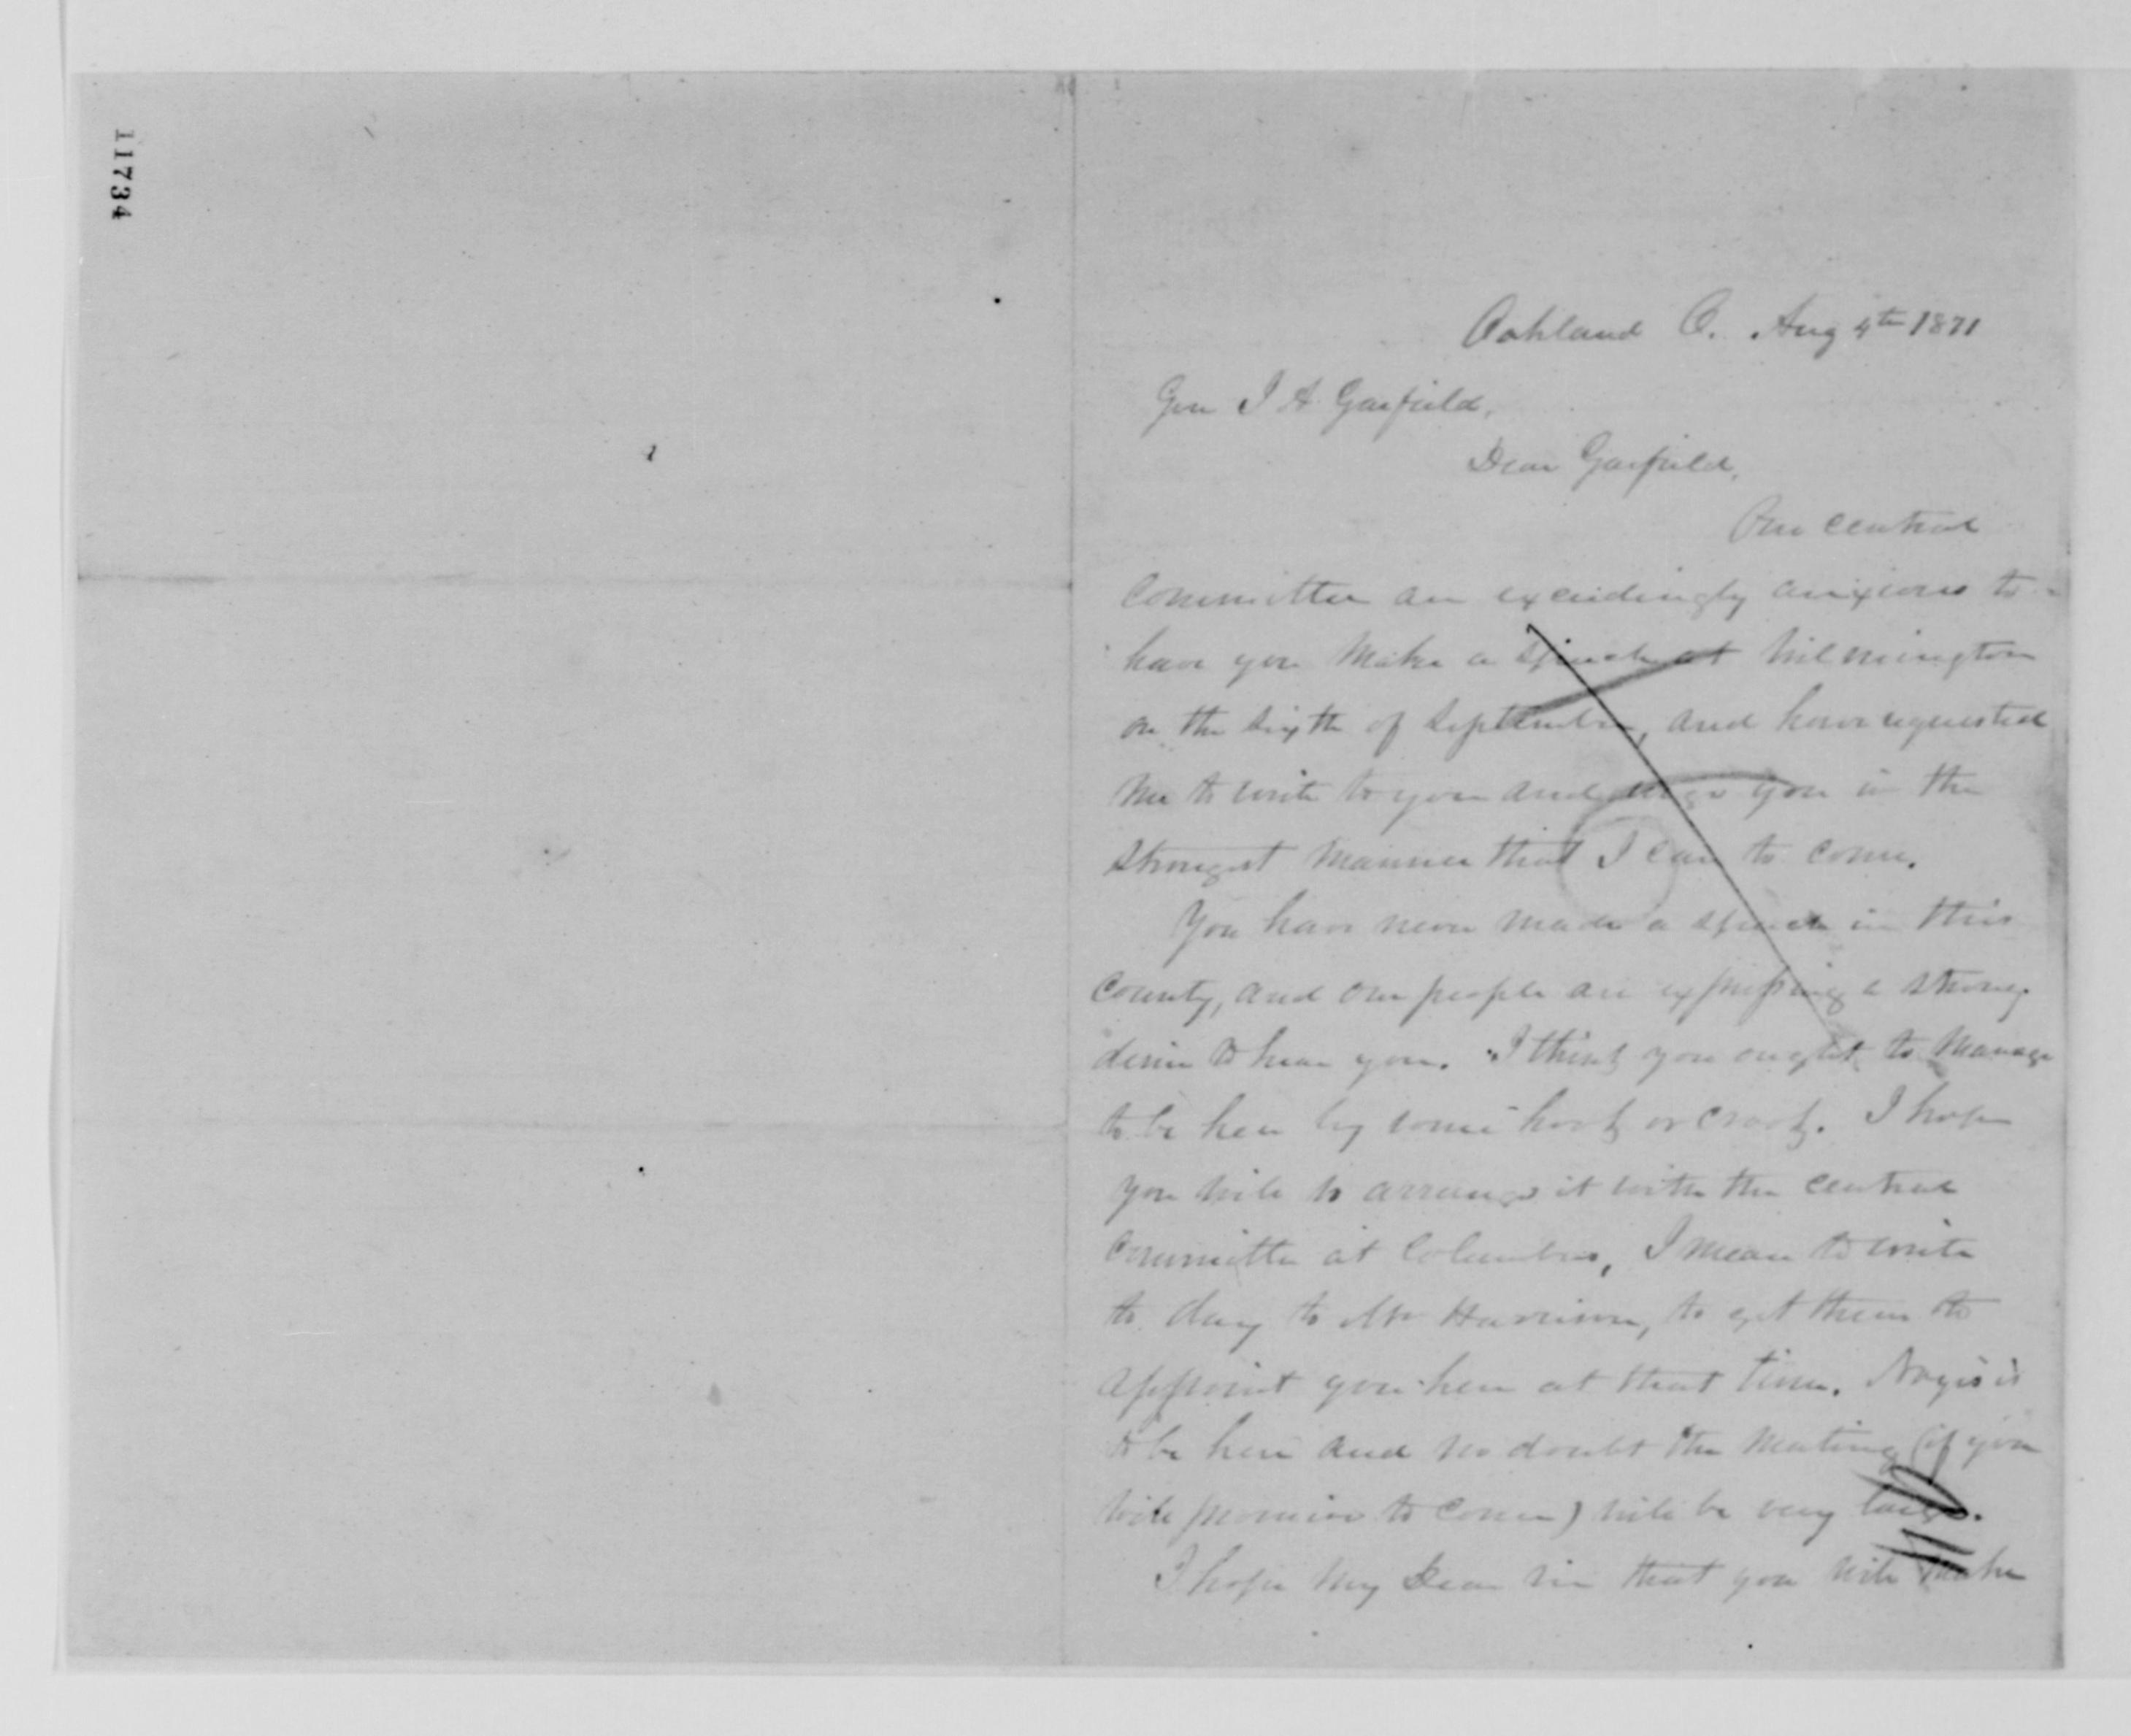 11734
Oakland O. Aug 4th 1871
Gen J A Garfield,
Dear Garfield,
Our central
committee are exceedingly anxious to
have you make a speech at Wilmington
on the sixth of September, and have requested
me to write to you and urge you in the
strongest manner that I can to come.
You have never made a speech in this
county, and our people are expressing a strong
desire to hear you. I think you ought to manage
to be here by some hook or crook. I hope
you will to arrange it with the central
committee at Columbus, I mean to write
to day to Mr Harrison, to get them to
appoint you here at that time. Noyes is
to be here and no doubt the meeting (if you
will promise to come) will be very large.
I hope my Dear sir that you will make